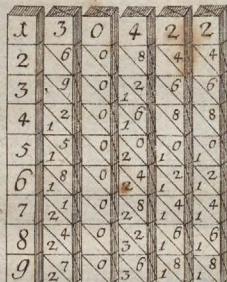 1 3 0 4 2 2
2 6 0 8 4 4
3 9 0 1 2 6 6
4 1 2 0 1 6 8 8
5 1 5 0 2 0 1 0 1 0
6 1 8 0 2 4 1 2 1 2
7 2 1 0 2 8 1 4 1 4
8 2 4 0 3 2 1 6 1 6
9 2 7 0 3 6 1 8 1 8